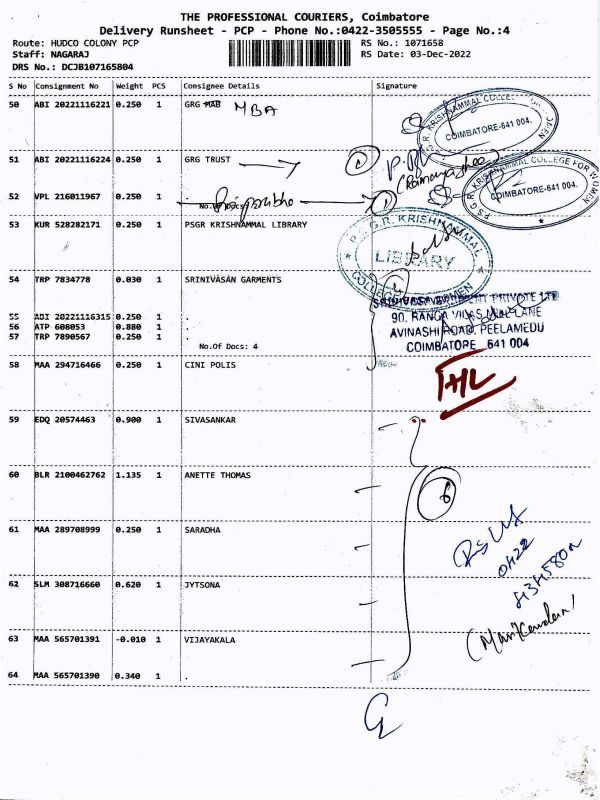 THE PROFESSIONAL COURIERS, Coimbatore
Delivery Runsheet - PCP - Phone No.:0422-3505555 - Page No.:4
Route: HUDCO COLONY PCP RS No.: 1071658
Staff: NAGARAJ RS Date: 03-Dec-2022
DRS No.: DCJB107165804
S No Consignment No Weight PCS Consignee Details Signature
50 ABI 20221116221 0.250 1 GRG MAB MBA
P.S.G.R. KRISHNAMMAL COLLEGE
COIMBATORE-641 004.
51 ABI 20221116224 0.250 1 GRG TRUST
P.S.G.R. KRISHNAMMAL COLLEGE FOR WOMEN
COIMBATORE-641 004.
52 VPL 216011967 0.250 1 .
53 KUR 528282171 0.250 1 PSGR KRISHNAMMAL LIBRARY
P.S.G.R. KRISHNAMMAL
LIBRARY
COLLEGE WOMEN
54 TRP 7834778 0.030 1 SRINIVASAN GARMENTS
55 ADI 20221116315 0.250 1 .
56 ATP 608053 0.880 1 .
57 TRP 7890567 0.250 1 .
No.Of Docs: 4
PRIVATE LTD
90, RANGA VILAS MILL LANE
AVINASHI ROAD, PEELAMEDU
COIMBATORE 641 004
58 MAA 294716466 0.250 1 CINI POLIS
59 EDQ 20574463 0.900 1 SIVASANKAR
60 BLR 2100462762 1.135 1 ANETTE THOMAS
6
61 MAA 289708999 0.250 1 SARADHA
0422
62 SLM 308716660 0.620 1 JYTSONA
63 MAA 565701391 -0.010 1 VIJAYAKALA
64 MAA 565701390 0.340 1 .